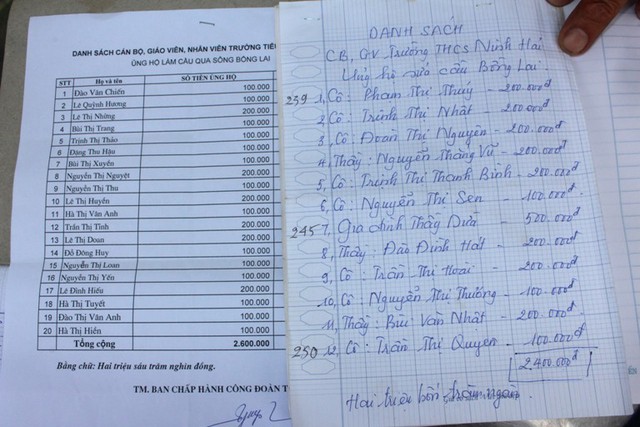 DANH SÁCH CÁN BỘ, GIÁO VIÊN, NHÂN VIÊN TRƯỜNG TIỂ
ỦNG HỘ LÀM CẦU QUA SÔNG BỒNG LAI
STT Họ và tên SỐ TIỀN ỦNG HỘ
1 Đào Văn Chiến 100.000
2 Lê Quỳnh Hương 100.000
3 Lê Thị Những 200.000
4 Bùi Thị Trang 100.000
5 Trịnh Thị Thảo 100.000
6 Đặng Thu Hậu 100.000
7 Bùi Thị Xuyến 100.000
8 Nguyễn Thị Nguyệt 200.000
9 Nguyễn Thị Thu 100.000
10 Lê Thị Huyền 200.000
11 Hà Thị Vân Anh 100.000
12 Trần Thị Tình 200.000
13 Lê Thị Doan 200.000
14 Đỗ Đông Huy 100.000
15 Nguyễn Thị Loan 100.000
16 Nguyễn Thị Yến 100.000
17 Lê Đình Hiếu 200.000
18 Hà Thị Tuyết 100.000
19 Đào Thị Vân Anh 100.000
20 Hà Thị Hiền 100.000
Tổng cộng 2.600.000
Bằng chữ: Hai triệu sáu trăm nghìn đồng.
TM. BAN CHẤP HÀNH CÔNG ĐOÀN T
DANH SÁCH
CB, GV Trường THCS Ninh Hải
Ủng hộ sửa cầu Bồng Lai.
259 1, Cô: Phạm Thị Thúy - 200.000đ
2, Cô: Trịnh Thị Nhật - 200.000đ
3, Cô: Đoàn Thị Nguyên - 200.000đ
4, Thầy: Nguyễn Thăng Vũ - 200.000đ
5, Cô: Trịnh Thị Thanh Bình - 200.000đ
6, Cô: Nguyễn Thị Sen - 100.000đ
245 7, Gia đình Thầy Dưa - 500.000đ
8, Thầy: Đào Đình Hát - 200.000đ
9, Cô: Trần Thị Hoài - 200.000đ
10, Cô: Nguyễn Thị Thường - 100.000đ
11, Thầy: Bùi Văn Nhật - 200.000đ
250 12, Cô: Trần Thị Quyên - 100.000đ
2,400.000đ
Hai triệu bốn trăm ngàn.